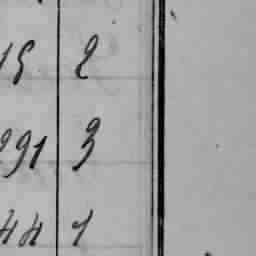 15 2
291 3
44 1